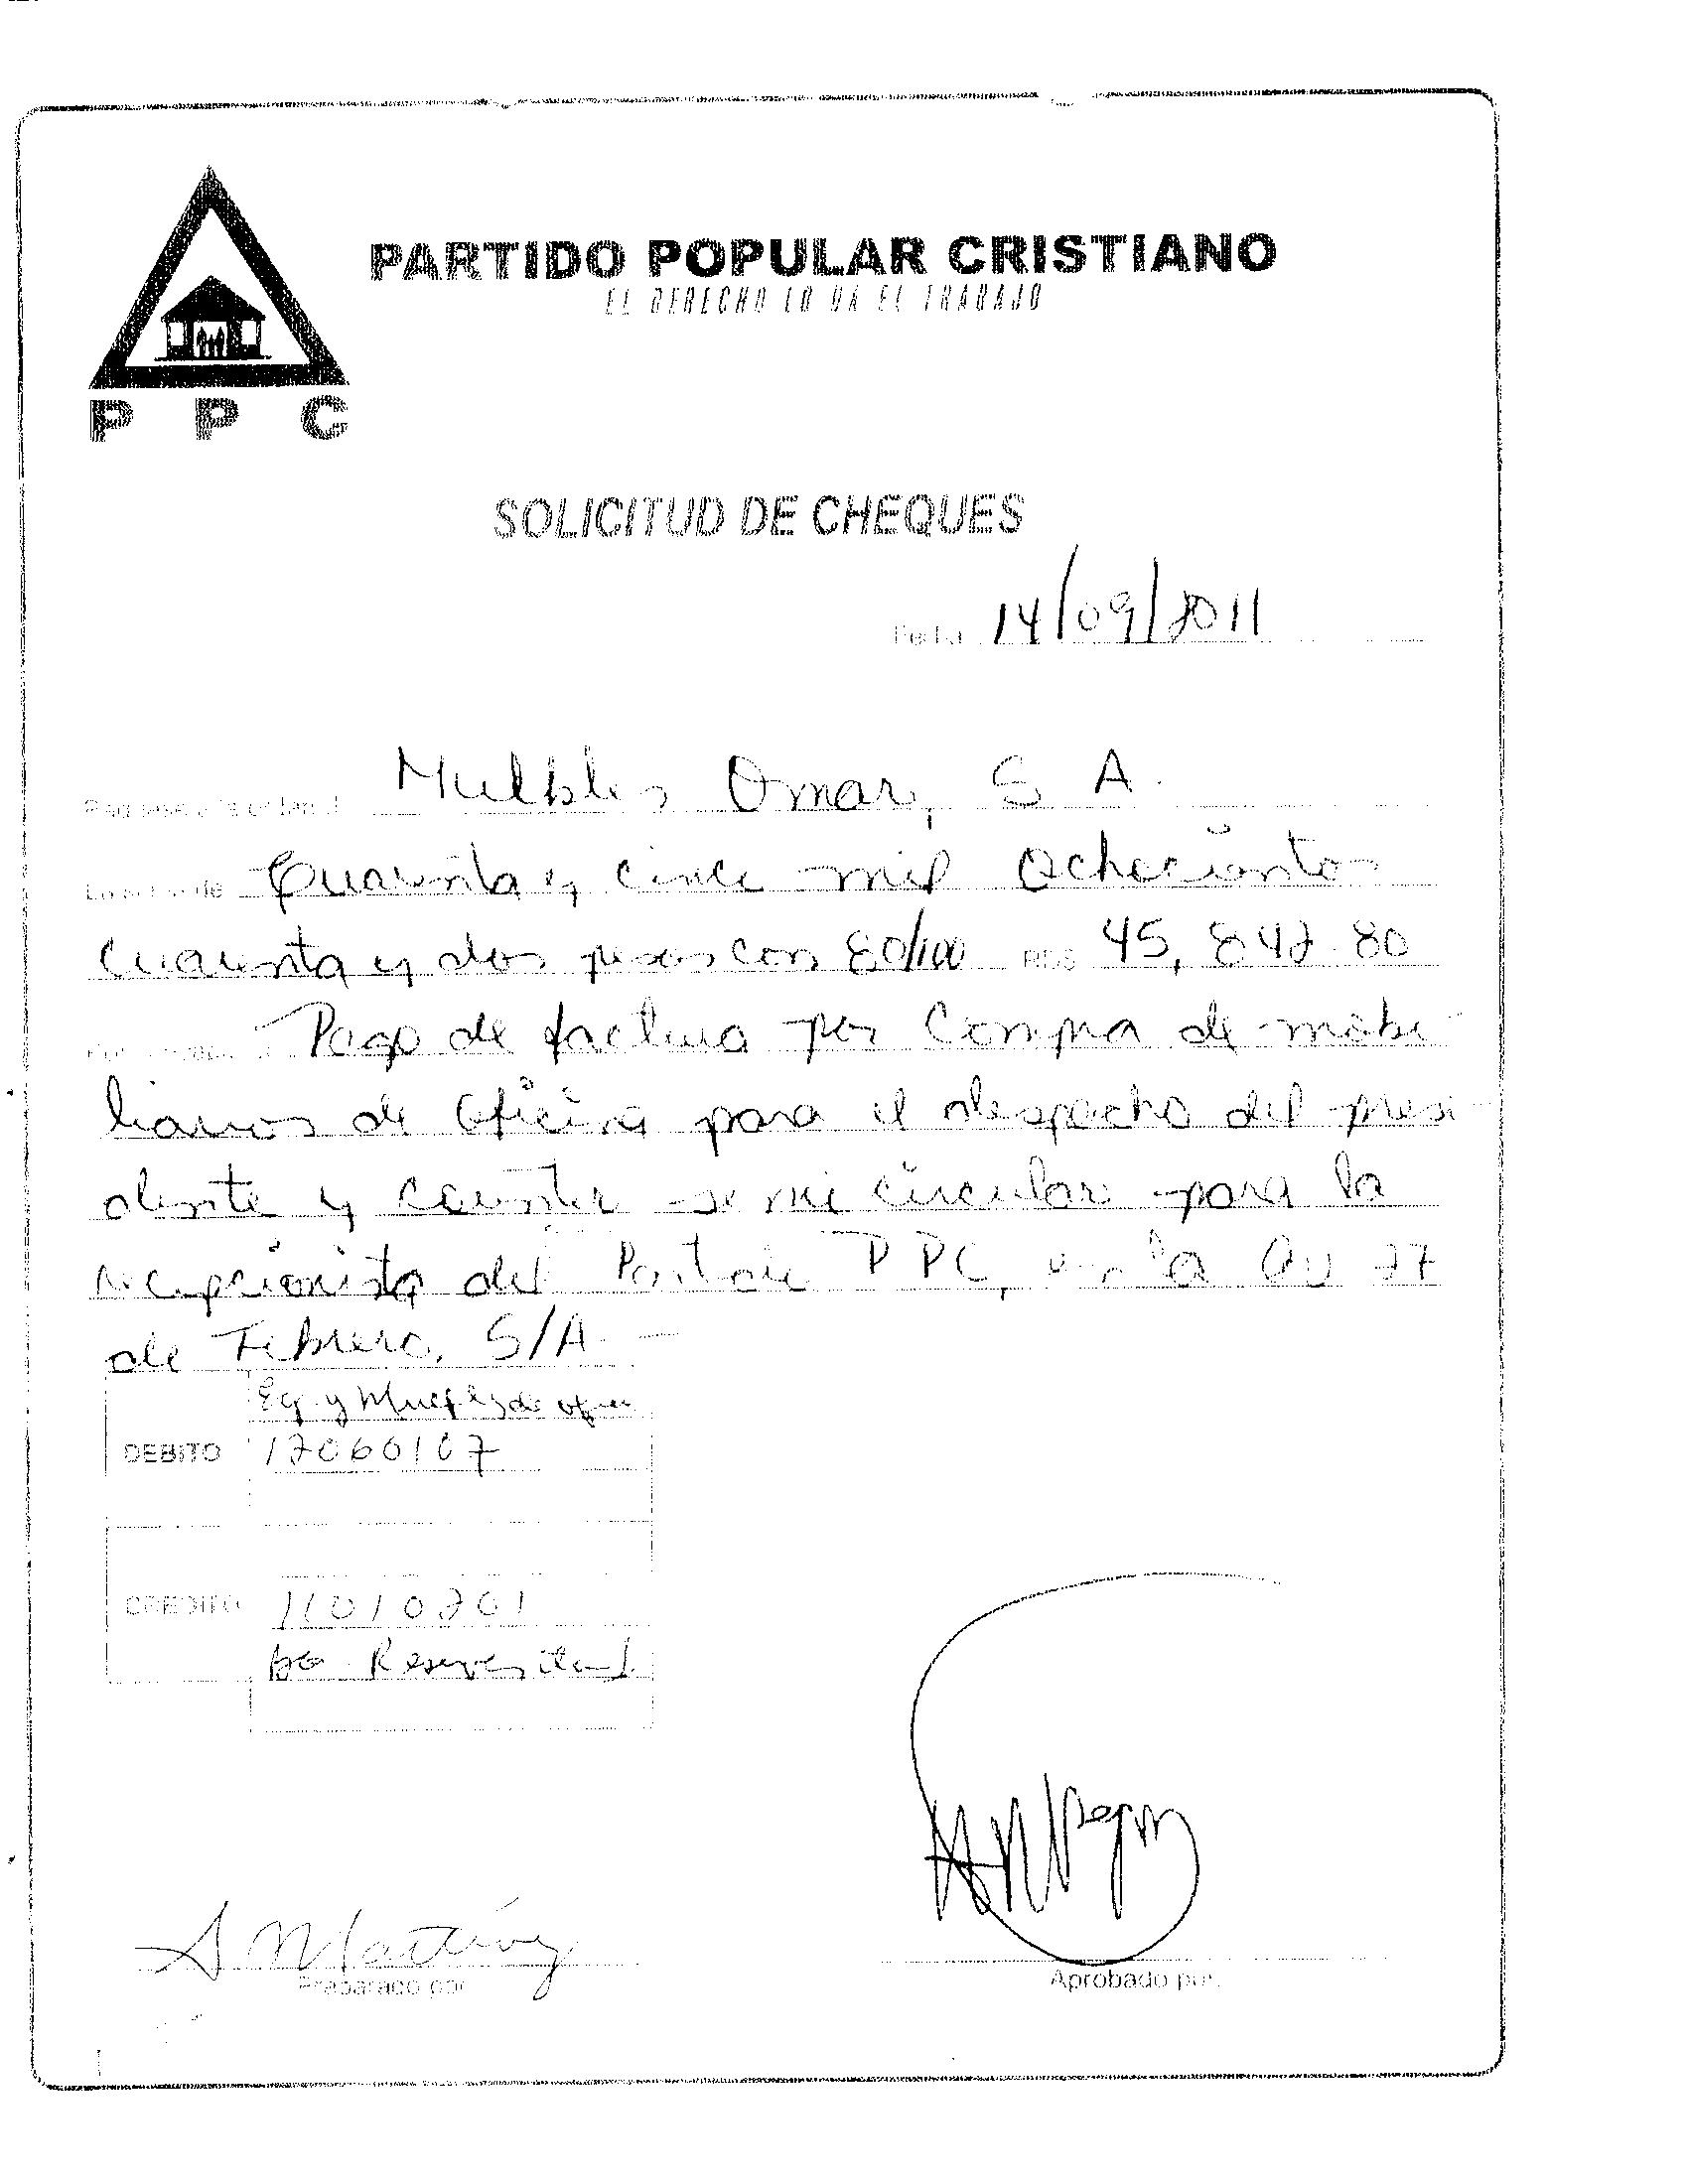 PARTIDO POPULAR CRISTIANO
EL DERECHO LO DA EL TRABAJO
P P C
SOLICITUD DE CHEQUES
Fecha 14/09/2011
Páguese a la orden de Muebles Omar, S A.
La suma de Cuarenta y cinco mil Ochocientos
cuarenta y dos pesos con 80/100 RD$ 45,842.80
Pago de factura por Compra de mobi-
liarios de Oficina para el despacho del presi-
dente y counter semi circular para la
recepcionista del PPC, en la Av 27
de Febrero, S/A.
Eq. y Muebles de ofic
DEBITO 12060107
CREDITO 11010201
Bco Reservas
S Martínez
Preparado por
Aprobado por